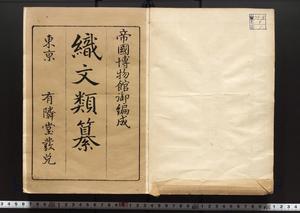 帝國博物館御編成
織文類纂
東京 有隣堂發兌